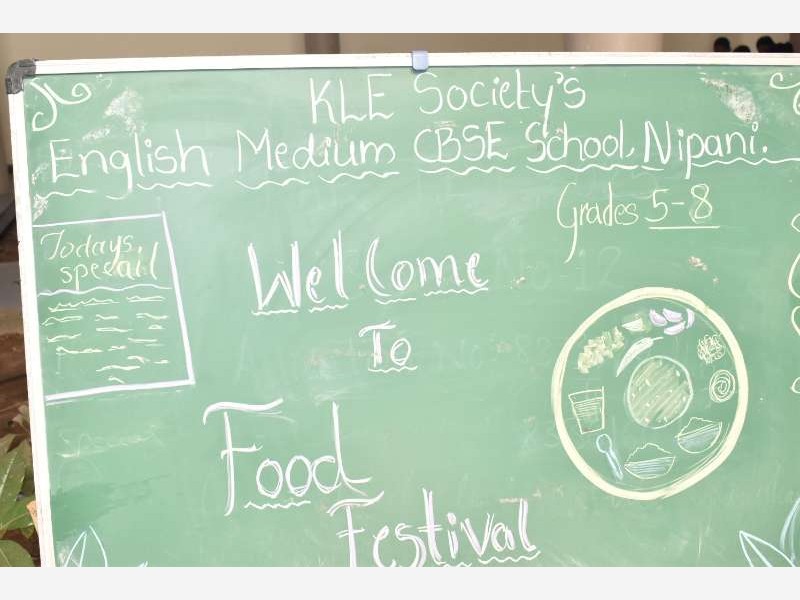 KLE Society's
English Medium CBSE School, Nipani.
Grades 5-8
Todays,
special
Wel Come
To
Food
Festival